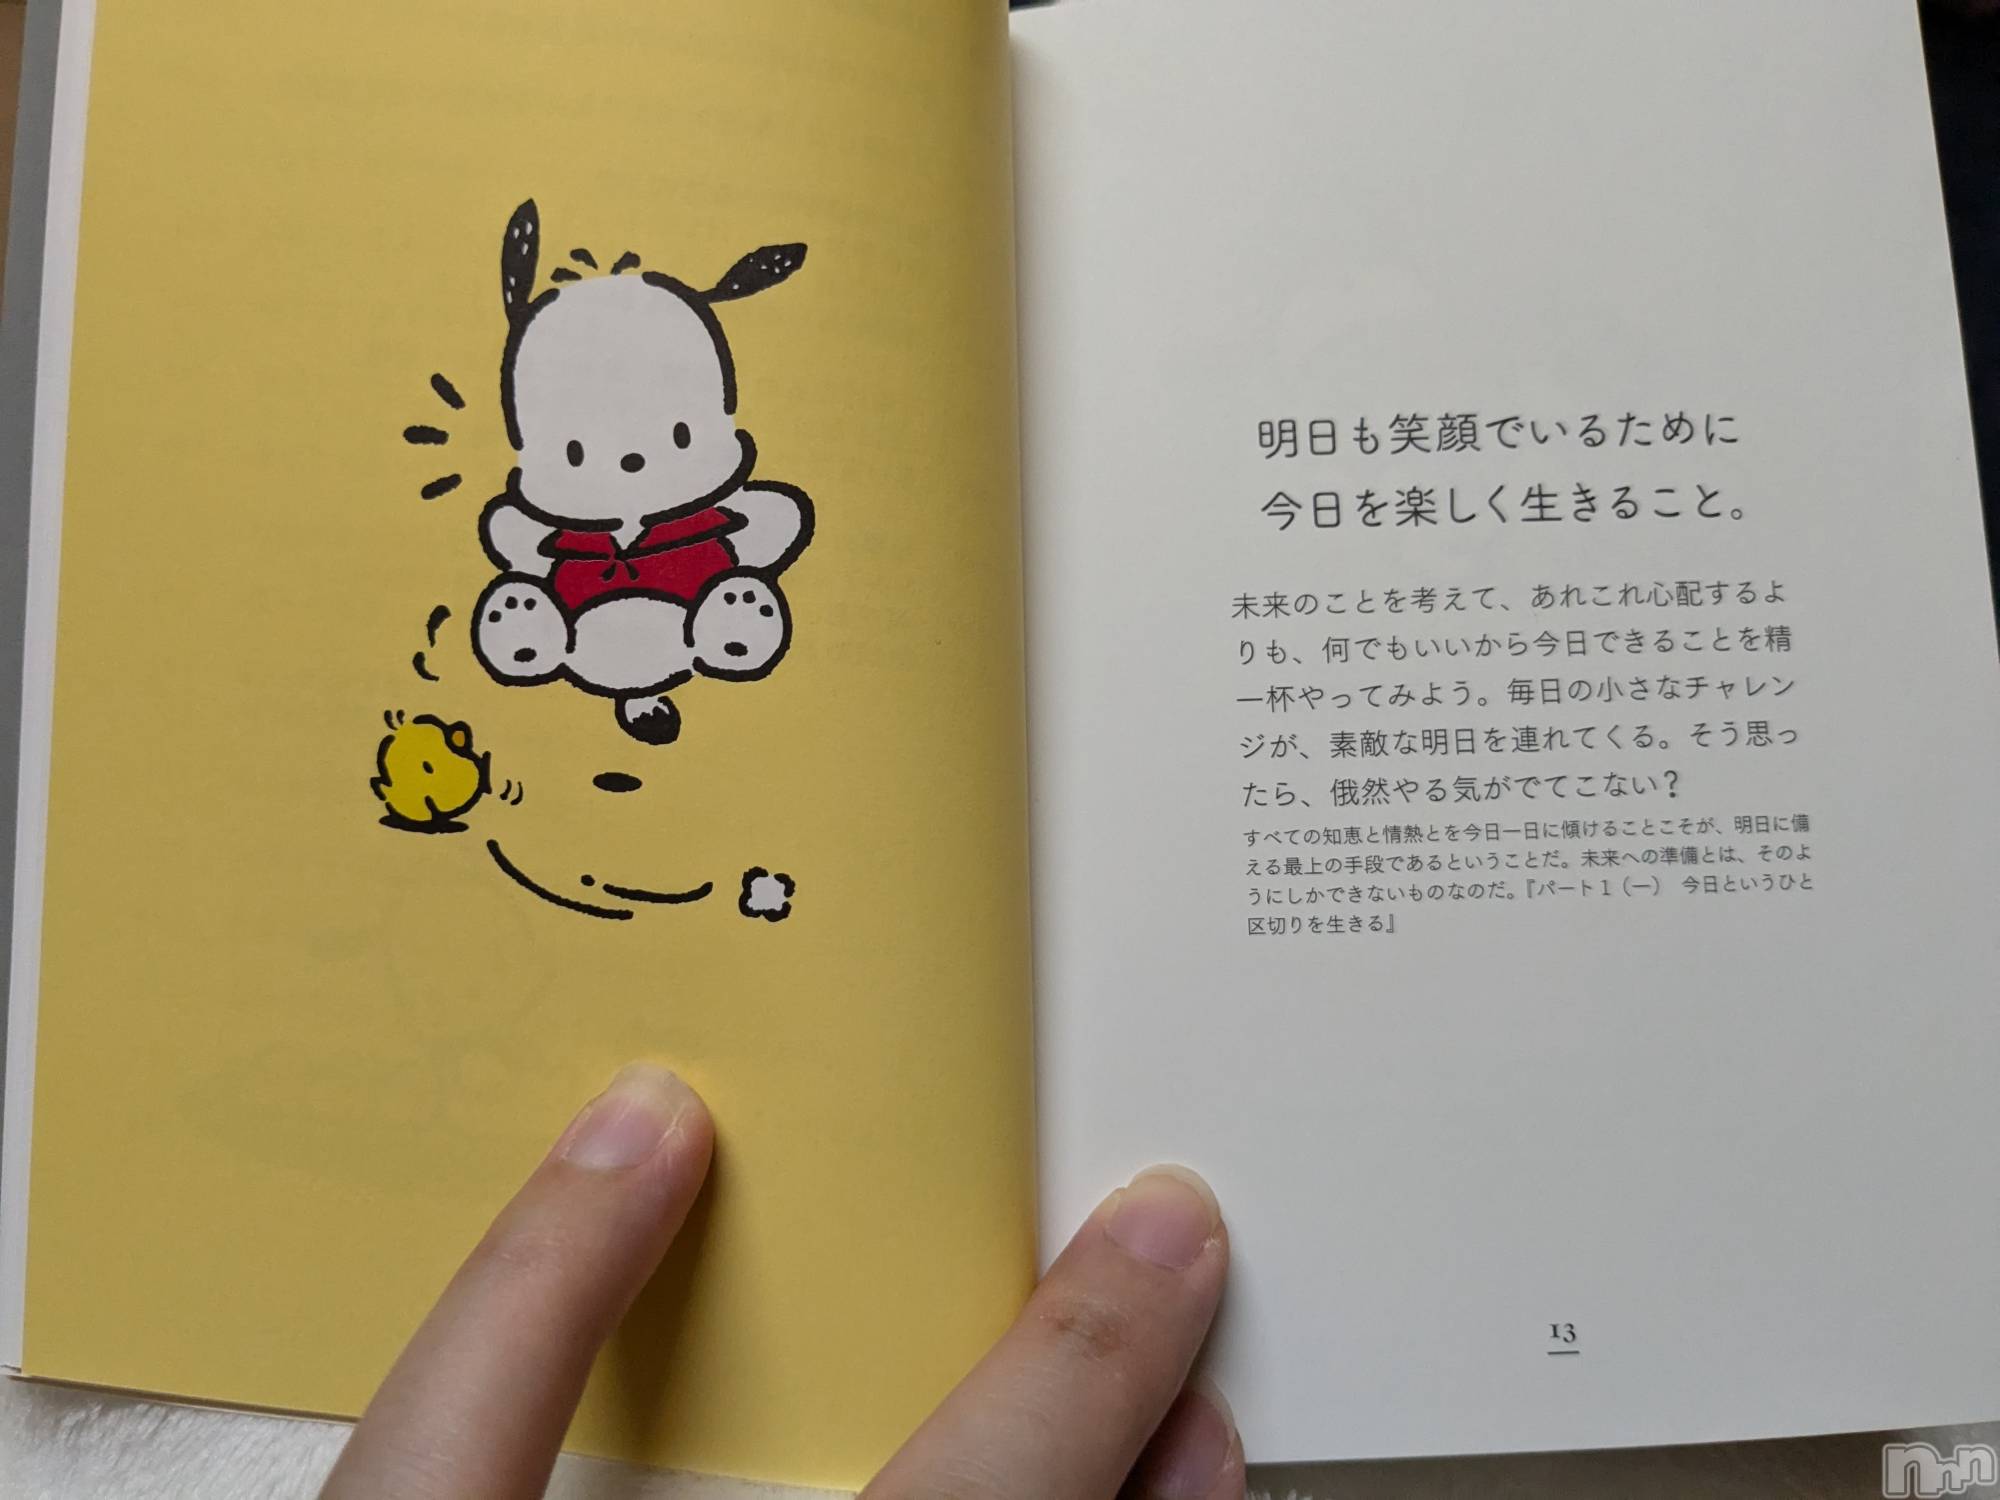 明日も笑顔でいるために
今日を楽しく生きること。
未来のことを考えて、あれこれ心配するよ
りも、何でもいいから今日できることを精
一杯やってみよう。毎日の小さなチャレン
ジが、素敵な明日を連れてくる。そう思っ
たら、俄然やる気がでてこない？
すべての知恵と情熱とを今日一日に傾けることこそが、明日に備
える最上の手段であるということだ。未来への準備とは、そのよ
うにしかできないものなのだ。『パート1（一）　今日というひと
区切りを生きる』
13
nnn